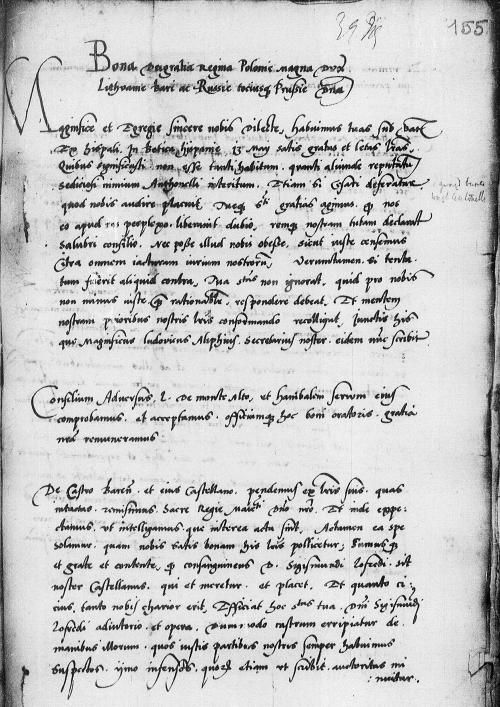 155
Bona Dei gratia Regina Polonie Magna Dux
Lithuanie Bari ac Russie tociusq Prussie Dna
Magnifice et Egregie sincere nobis Dilecte, habuimus tuas sub dat
Ex hispali. In Betica hispanie 13 May satis gratas et letas lras.
Quibus significasti non esse tanti habitum. quanti aliunde
seditiosi nimium Anthonelli interitum. Etiam si Cesari deferatur
quod nobis audire placuit. gratias agimus. q nos
eo apud perplexo liberavit dubio, remq nostram tutam declarat
salubri consilio. Nec posse illud nobis obesse, sicut iuste censemus
Citra omnem iacturam iurium nostrorum, Verumtamen si tenta
tum fuerit aliquid contra, Tua non ignorat, quid pro nobis
non minus iuste q rationabile respondere debeat. Et mentem
nostram prioribus nostris lris conformando recolligat, Iunctis his
que Magnificus ludovicus Aliphius Secretarius noster eidem nunc scribit
Consilium Adversus, l. De monte Alto, et hanibalem servum eius
comprobamus. et acceptamus. officiumq hoc boni oratoris gratia
nra remuneramus
De Castro Baren. et eius Castellano. pendemus ex lris suis. quas
Sacre Regie Maiesti Dno nro. Et inde expe-
ctamus, ut intelligamus. que interea acta sunt, Attamen ea spe
solamur. quam nobis satis bonam his lris pollicetur, Sumusq
et grate et contente, q consanguineus D. Sigismundi lofredi sit
noster Castellanus. qui et meretur. et placet, Et quanto ci-
cius, tanto nobis charior erit, Efficiat hoc tua. Dni Sigismundi
lofredi adiutorio et opera, Dummodo castrum erripiatur de
manibus illorum. quos iustis partibus nostris semper habuimus
suspectos, ymo infensos. quoq etiam ut scribit, auctoritas mi
nuitur.